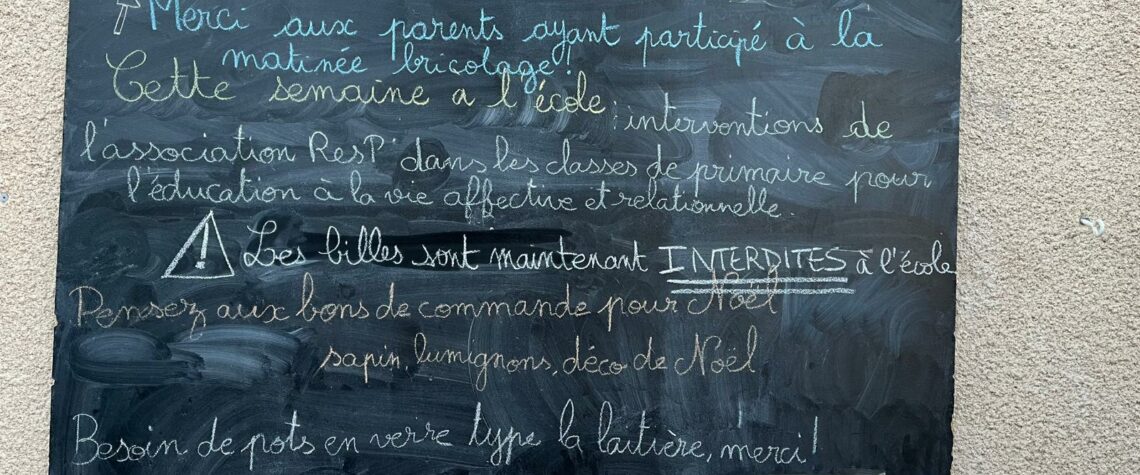 Merci aux parents ayant participé à la
matinée bricolage!
Cette semaine a l'école : interventions de
l'association ResP' dans les classes de primaire pour
l'éducation à la vie affective et relationnelle.
Les billes sont maintenant INTERDITES à l'école
Pensez aux bons de commande pour Noël
sapin, lumignons, déco de Noël
Besoin de pots en verre type la laitière, merci!